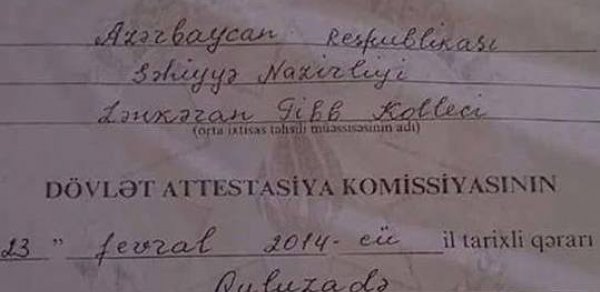 Azərbaycan Respublikası
Səhiyyə Nazirliyi
Lənkəran Tibb Kolleci
(orta ixtisas təhsili müəssisəsinin adı)
DÖVLƏT ATTESTASİYA KOMİSSİYASININ
23 " fevral 2014-cü il tarixli qərarı
Quluzadə